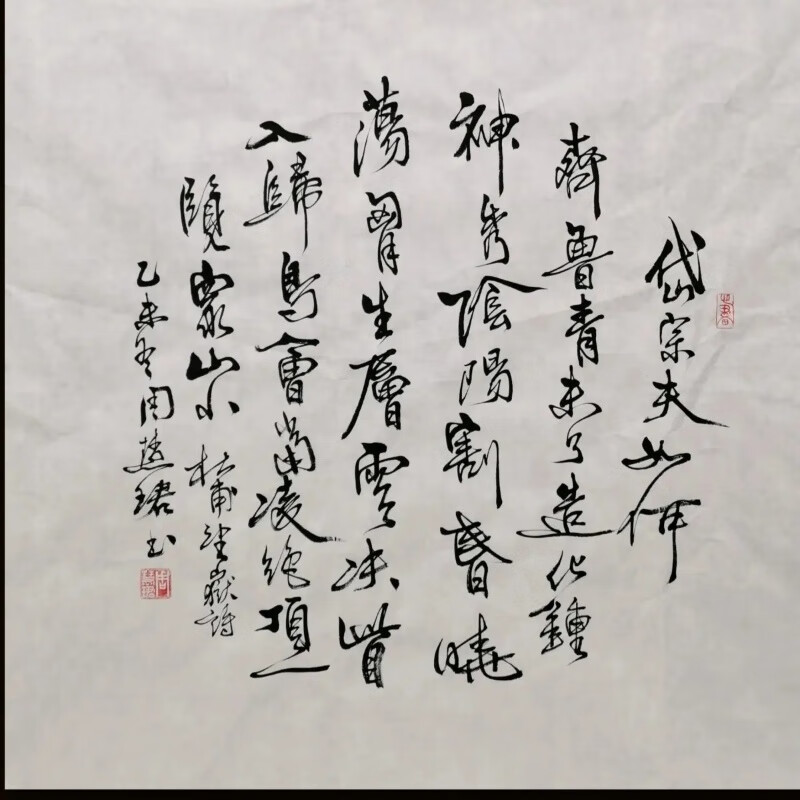 岱宗夫如何
齊魯青未了造化鍾
神秀陰陽割昏曉
蕩胷生層雲決眥
入歸鳥會當凌絕頂一
覽衆山小 杜甫望嶽詩
乙未冬周珺书